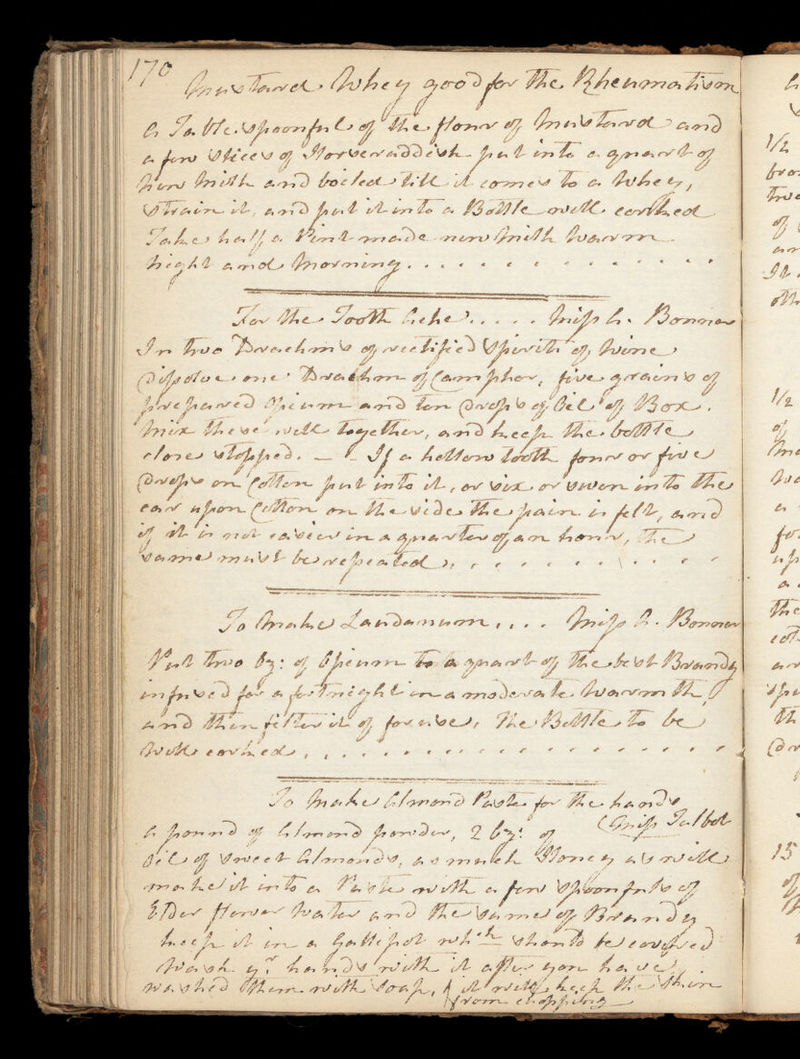 170
Mustard Whey good for the Rheumatism
A Table spoonful of the flour of Mustard and
a few slices of Horseraddish put into a quart of
New Milk and boiled till it comes to a Whey,
Strain it, and put it into a Bottle well corked
Take half a Pint made new Milk Warm
Night and Morning.
For the Tooth Ache..... Miss A. Bonner
In two Drachms of rectified Spirits of Wine
Dissolve one Drachm of Camphor, five grains of
prepared Opium and ten Drops of Oil of Box.
Mix these well together, and keep the bottle
close stopped. — If a hollow tooth four or five
Drops on Cotton put into it, or six or seven into the
ear upon Cotton on the side the pain is felt, and
if it is not easier in a quarter of an hour, the
same must be repeated
To Make Laudanum.... Miss A. Bonner
Put two oz: of Opium to a quart of the best Brandy
infused for a fortnight in a moderate Warmth,
and then filter it of for use, The Bottle to be
Well corked
To Make Almond Paste for the hands
(Miss Talbot
A pound of Almond powder, 2 oz: of
Oil of Sweet Almonds, as much Honey as will
make it into a Paste with a few Spoonfuls of
Elder flower Water and the same of Brandy
keep it in a Gallipot wh:ch should be covered
Wash yr hands with it after you have
washed them with Soap, & it will keep the Skin
from chopping
1/2
two
of
oth
1/2
of
a
up
a
the
th
15
of